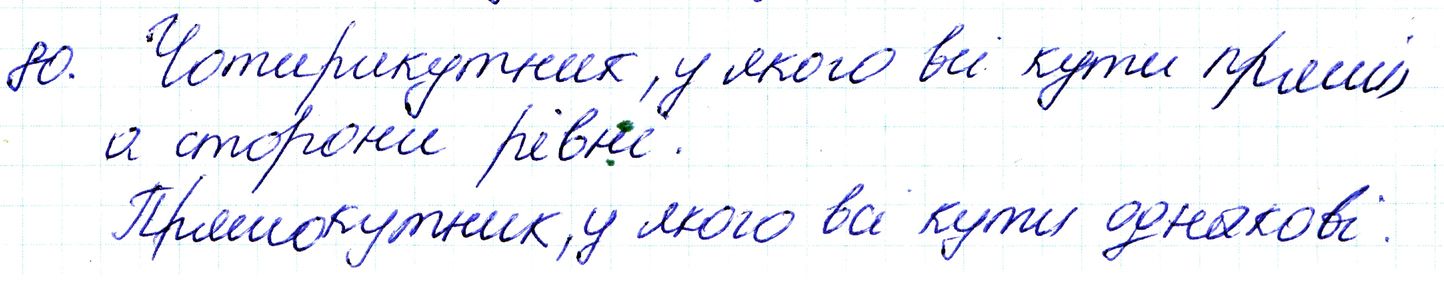 80. Чотирикутник, у якого всі кути прямі,
а сторони рівні.
Прямокутник, у якого всі кути однакові.